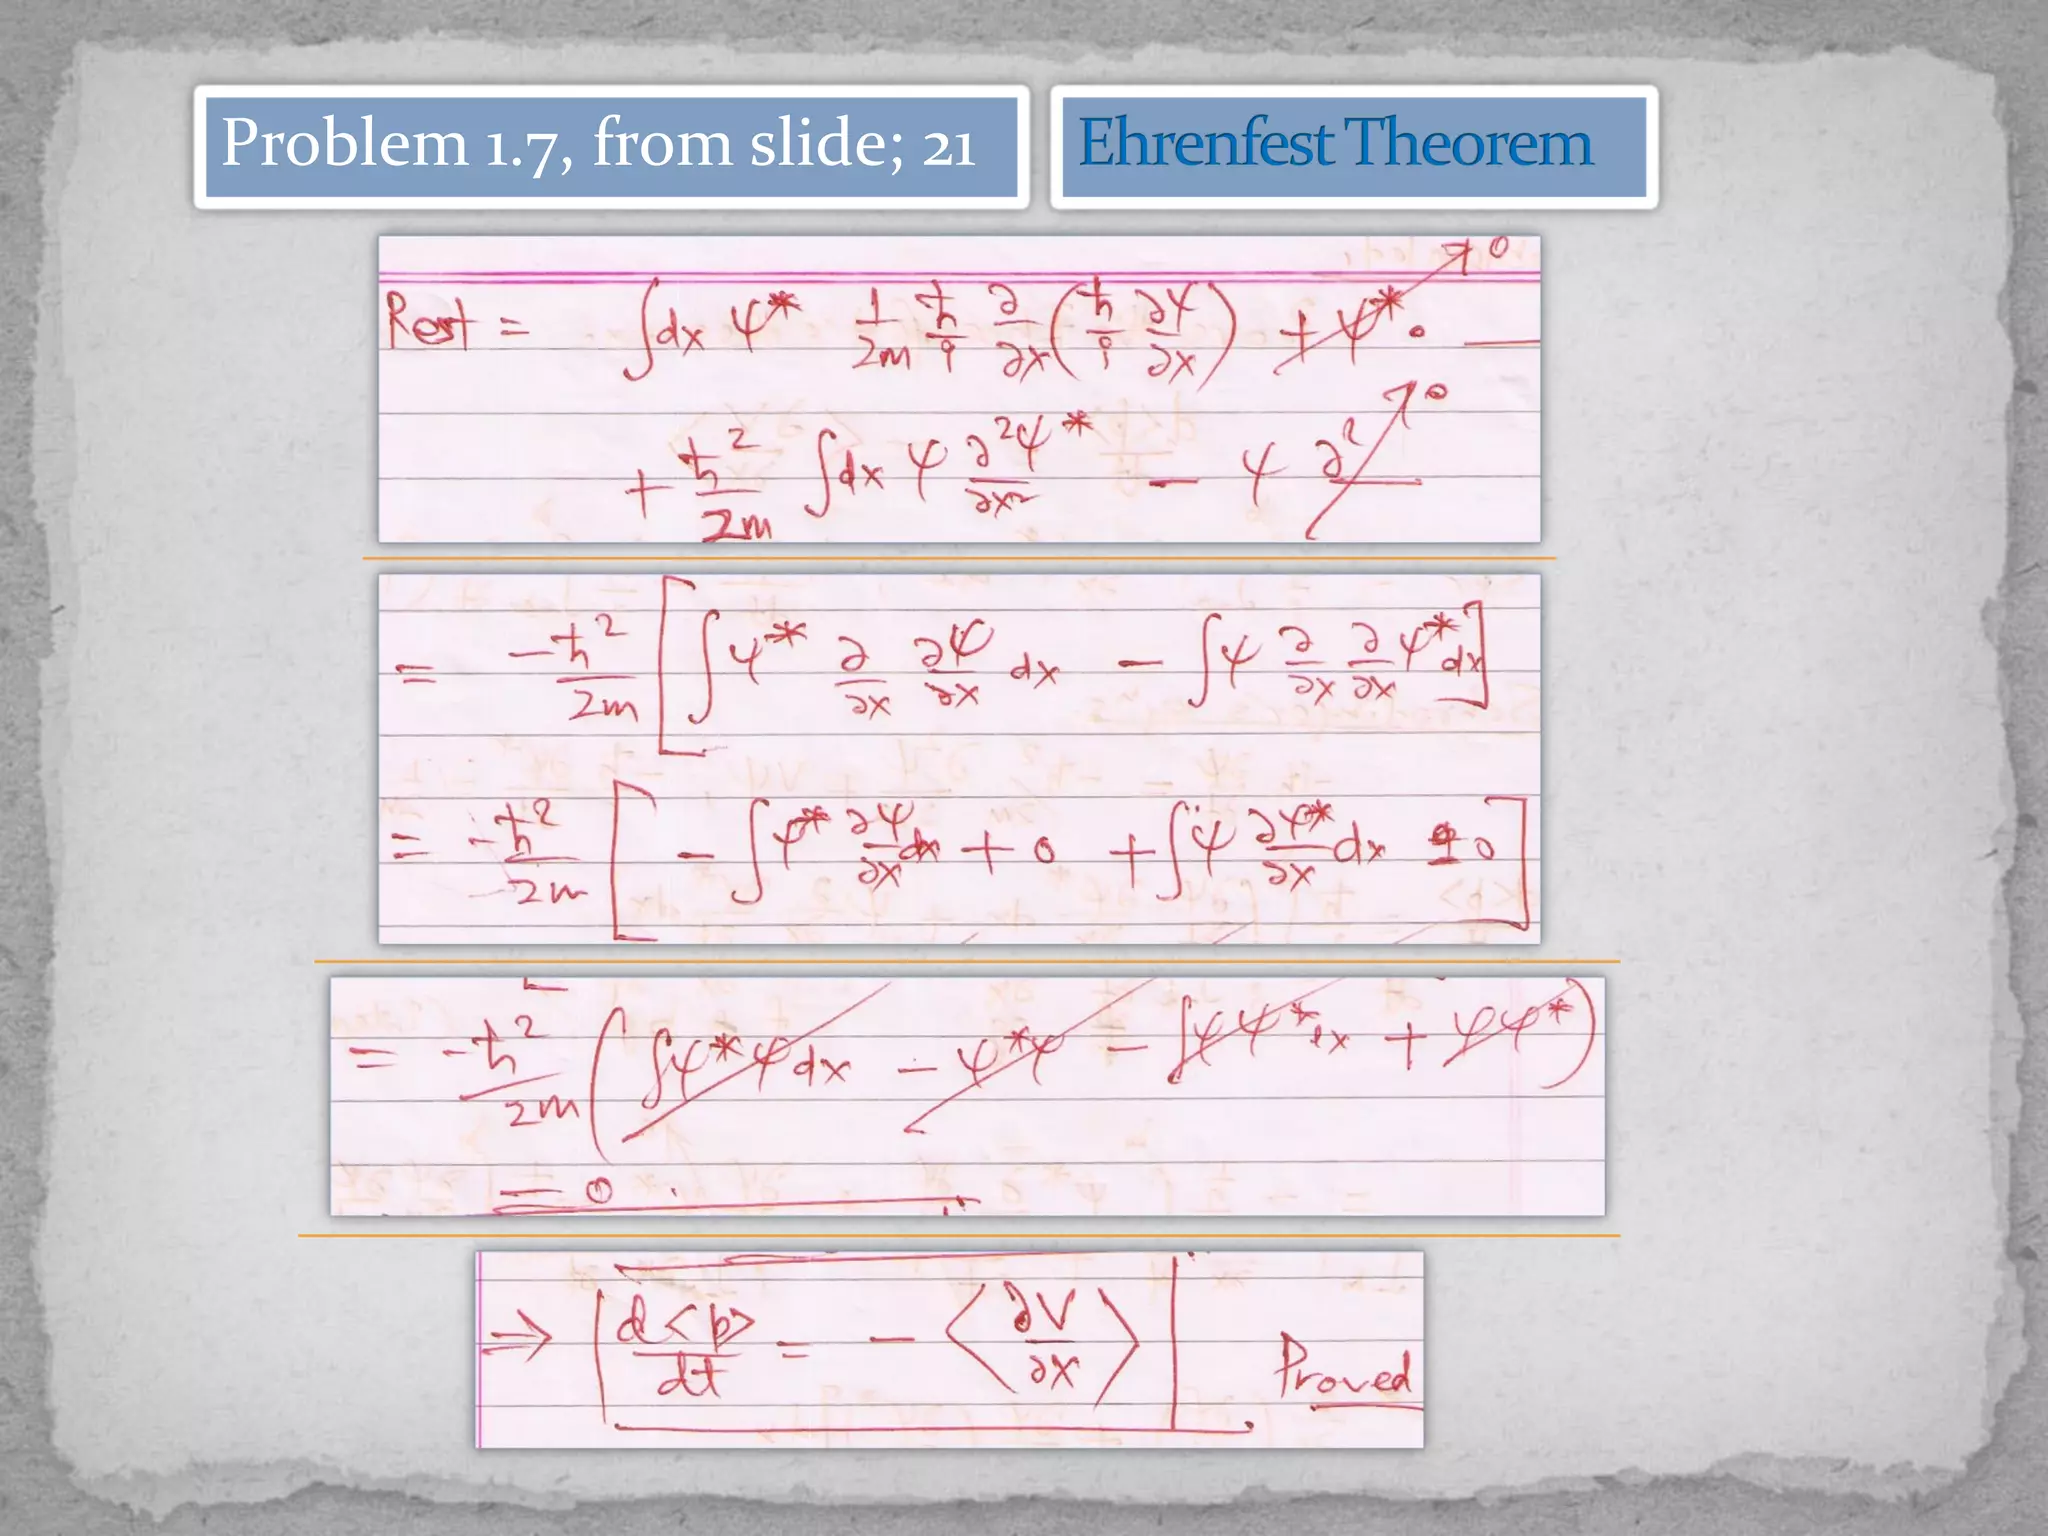 Problem 1.7, from slide; 21
Ehrenfest Theorem
Rest = ∫dx ψ* 1/2m ħ/i ∂/∂x (ħ/i ∂ψ/∂x) + ψ* · — → 0
+ ħ²/2m ∫dx ψ ∂²ψ*/∂x² − ψ ∂²/ → 0
= −ħ²/2m [∫ψ* ∂/∂x ∂ψ/∂x dx − ∫ψ ∂/∂x ∂/∂x ψ* dx]
= −ħ²/2m [− ∫ψ* ∂ψ/∂x dx + 0 + ∫ψ ∂ψ*/∂x dx ± 0]
= −ħ²/2m (∫ψ*ψ dx − ψ*ψ − ∫ψψ* dx + ψψ*)
= 0.
⇒ d<p>/dt = − ⟨∂V/∂x⟩ Proved